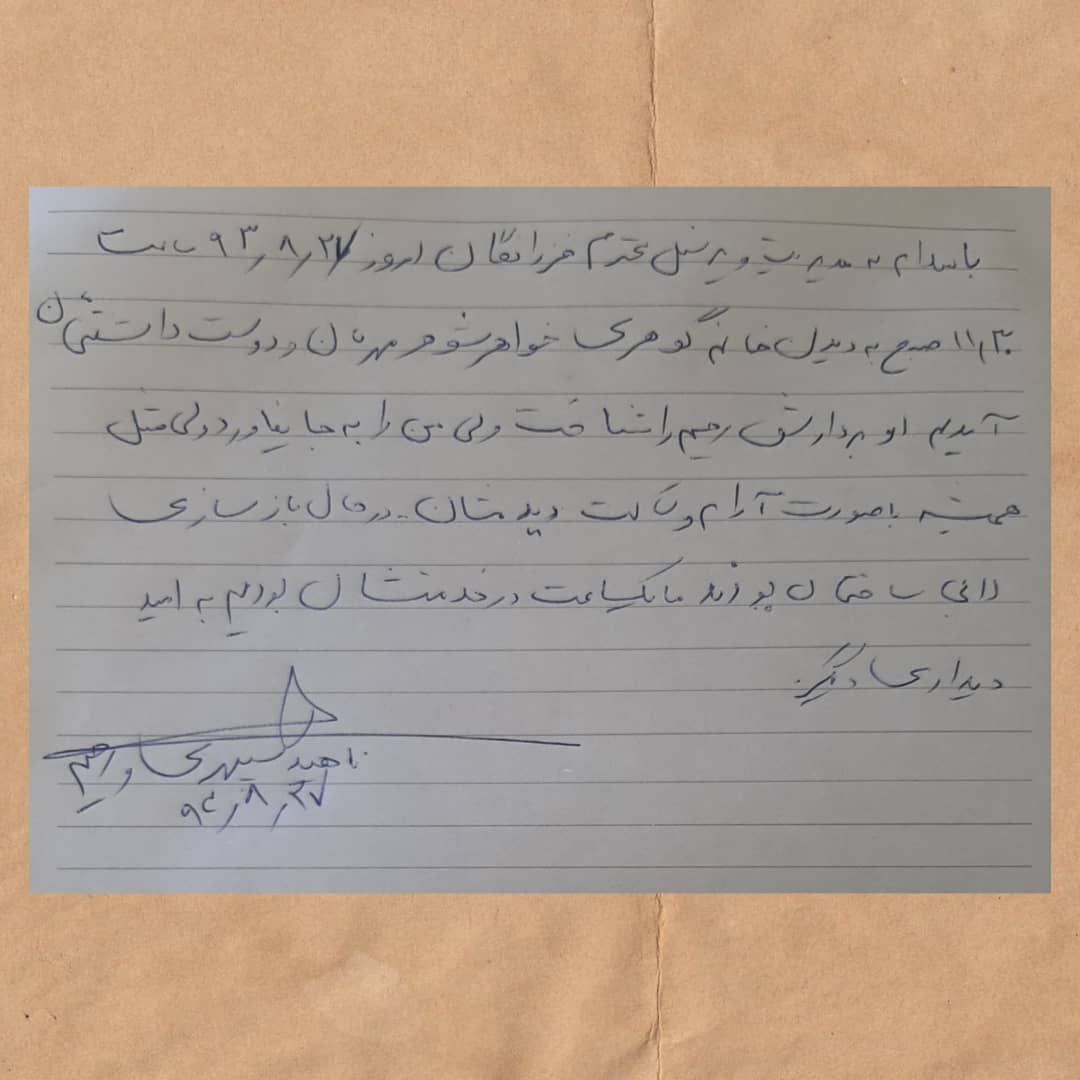 با سلام به مدیریت و پرسنل محترم فرزانگان امروز ۹۳٫۸٫۲۷ ساعت
۱۱٫۳۰ صبح به دیدن خانم گوهری خواهرشوهر مهربان و دوست داشتنی‌مان
آمدیم او برادرش رحیم را شناخت ولی من را به جا نیاورد ولی مثل
همیشه بصورت آرام و ساکت دیدمشان در حال بازسازی
داخلی ساختمان بودند ما یکساعت در خدمتشان بودیم به امید
دیداری دیگر.
ناهید سپهری و رحیم
۹۴٫۸٫۲۷